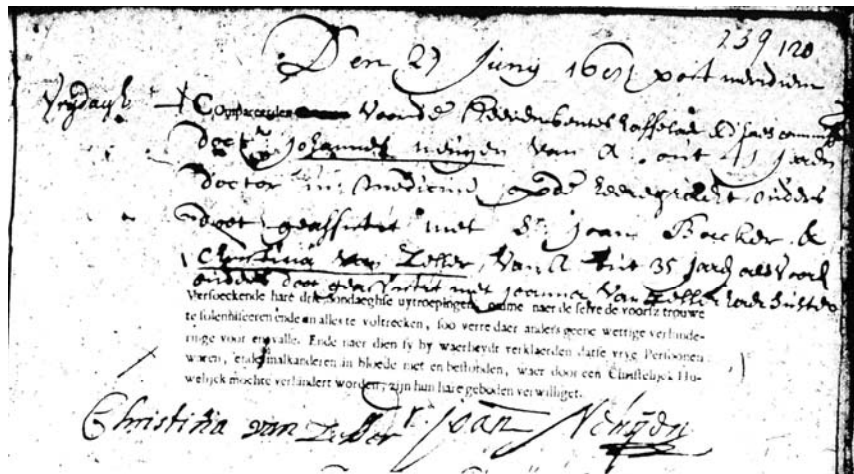 239 120
Den 27 Juny 1681 post meridiem
Vrydagh
Compareerden voor de
doctr Johannes van A. out 41 Jaren
doctor in medicine, op de heeregracht, ouders
doot geassisteert met Sr. Joan Backer &
Christina van Zeller, van A out 35 Jaer als voren
ouders doot geassisteert met Joanna van Zeller haer suster
Versoeckende hare drie Sondaeghse uytroepingen, omme naer de selve de voorsz trouwe
te solenniseeren ende in alles te voltrecken, soo verre daer anders geene wettige verhinde-
ringe voor en valle. Ende naer dien sy by waerheydt verklaerden datse vrye Persoonen
waren, ende malkanderen in bloede niet en bestonden, waer door een Christelijck Hu-
welijck mochte verhindert worden, zijn hun hare geboden verwilliget.
Christina van Zeller Joan